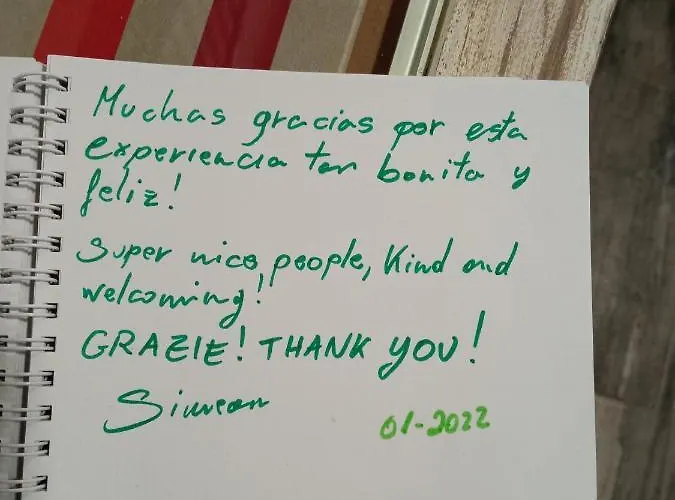 Muchas gracias por esta
experiencia tan bonita y
feliz!
Super nice people, Kind and
welcoming!
GRAZIE! THANK YOU!
Simeon
01-2022